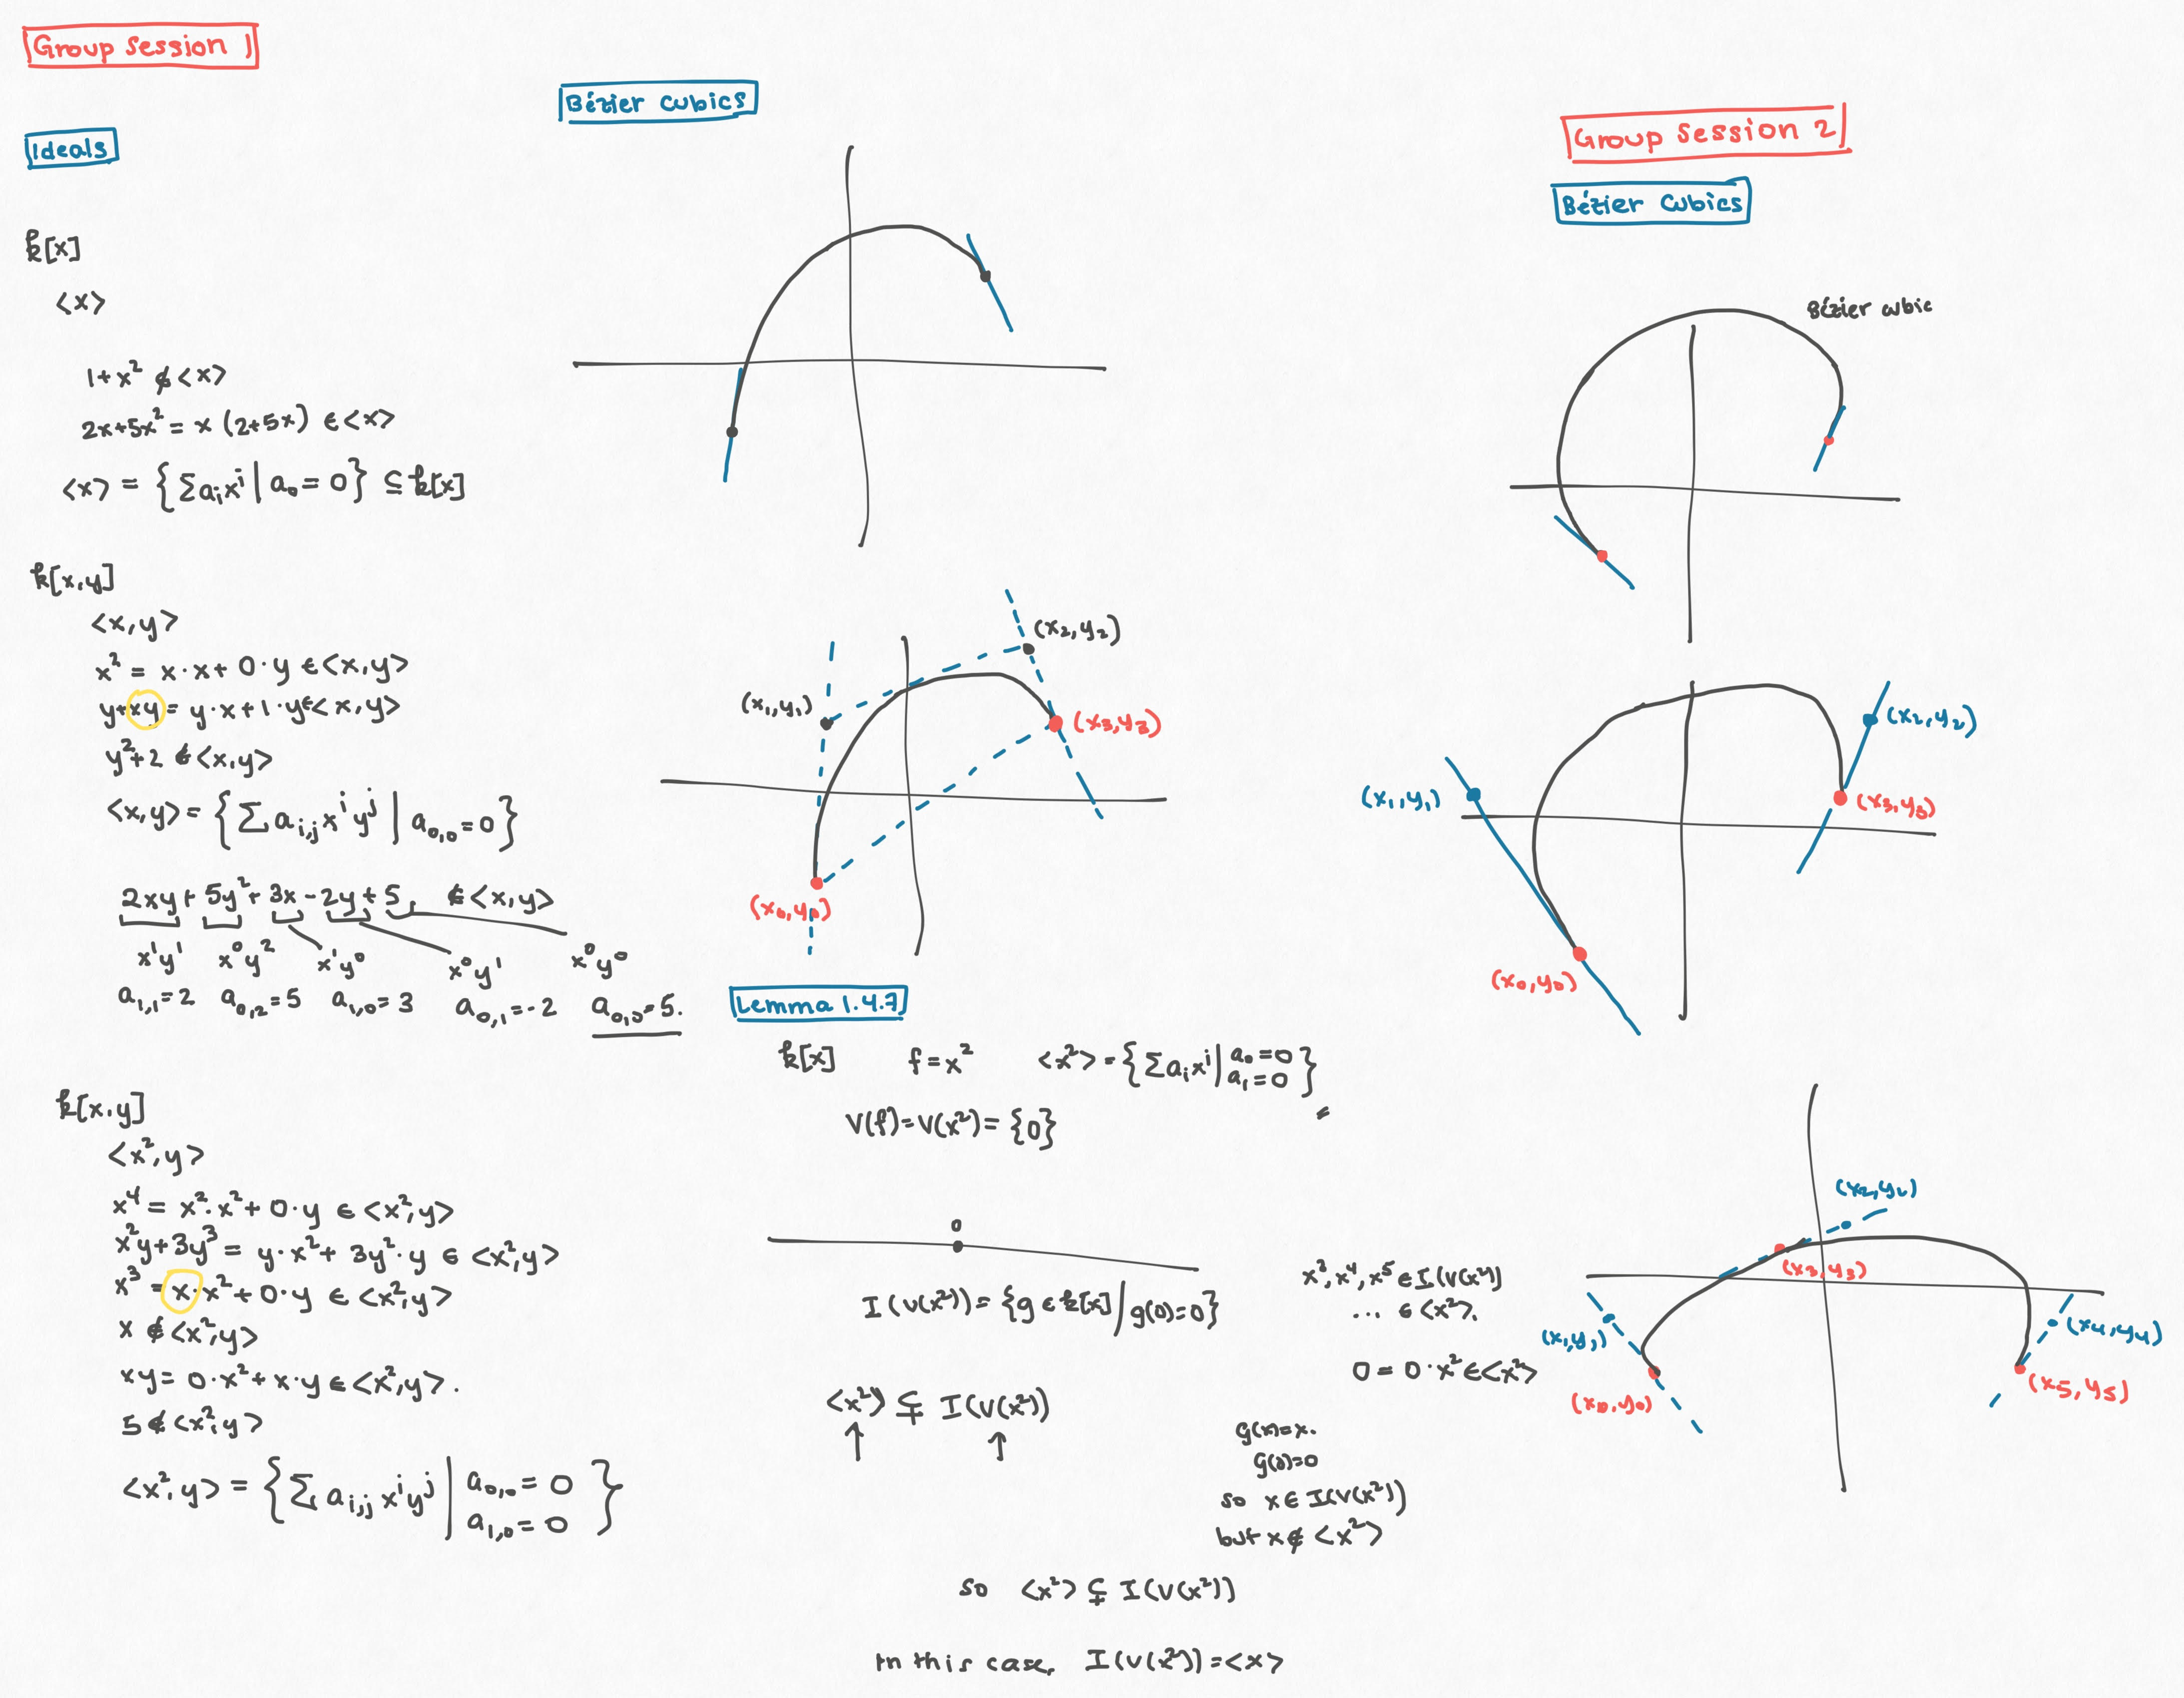 Group Session 1
Ideals
k[x]
<x>
1+x² ∉ <x>
2x+5x² = x (2+5x) ∈ <x>
<x> = {Σaᵢxⁱ | a₀ = 0} ⊆ k[x]
k[x,y]
<x,y>
x² = x·x + 0·y ∈ <x,y>
y+xy = y·x+1·y ∈ <x,y>
y²+2 ∉ <x,y>
<x,y> = {Σ a_{i,j} xⁱyʲ | a_{0,0} = 0}
2xy + 5y² + 3x - 2y + 5. ∉ <x,y>
x¹y¹ x⁰y² x¹y⁰ x⁰y¹ x⁰y⁰
a_{1,1}=2 a_{0,2}=5 a_{1,0}=3 a_{0,1}=-2 a_{0,0}=5.
k[x,y]
<x²,y>
x⁴ = x²·x² + 0·y ∈ <x²,y>
x²y+3y³ = y·x² + 3y²·y ∈ <x²,y>
x³ = x·x² + 0·y ∈ <x²,y>
x ∉ <x²,y>
xy = 0·x² + x·y ∈ <x²,y>.
5 ∉ <x²,y>
<x²,y> = {Σ a_{i,j} xⁱyʲ | a_{0,0} = 0
a_{1,0} = 0}
Bézier Cubics
(x₂,y₂)
(x₁,y₁)
(x₃,y₃)
(x₀,y₀)
Lemma 1.4.7
k[x] f = x² <x²> = {Σaᵢxⁱ | a₀ = 0
a₁ = 0}
V(f) = V(x²) = {0}
0
I(V(x²)) = {g ∈ k[x] | g(0)=0}
<x²> ⊊ I(V(x²))
↑ ↑
x³, x⁴, x⁵ ∈ I(V(x²))
... ∈ <x²>.
0 = 0·x² ∈ <x²>
g(x)=x.
g(0)=0
so x ∈ I(V(x²))
but x ∉ <x²>
so <x²> ⊊ I(V(x²))
In this case, I(V(x²)) = <x>
Group Session 2
Bézier Cubics
Bézier cubic
(x₂,y₂)
(x₁,y₁)
(x₃,y₃)
(x₀,y₀)
(x₂,y₂)
(x₃,y₃)
(x₁,y₁)
(x₄,y₄)
(x₀,y₀)
(x₅,y₅)